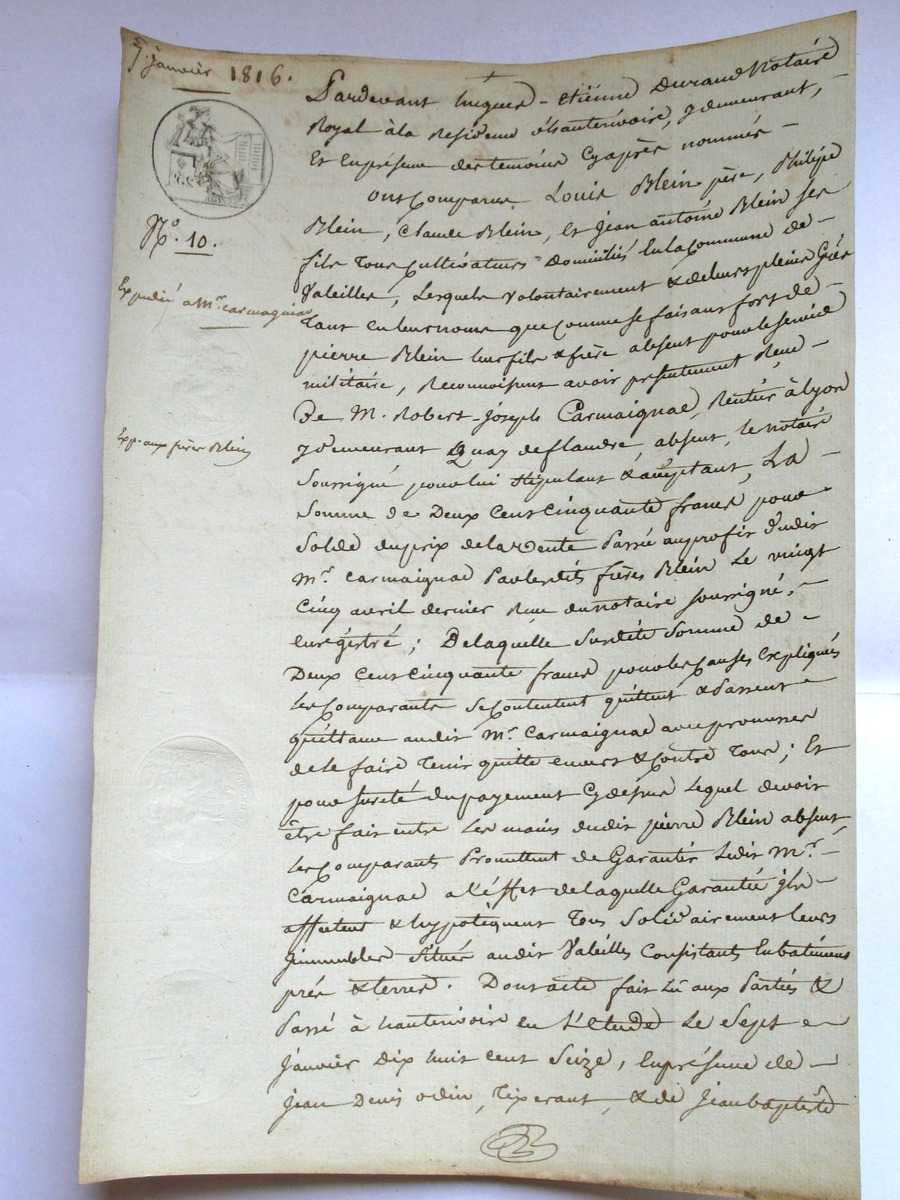 7. janvier 1816.
N.º 10.
Expédié a Mr. carmagnac
Exp. aux frères Blein
Pardevant hugues-etienne Durand Notaire
Royal à la Residence d'hauterivoire, y demeurant,
Et En présence des temoins Cy après nommés
ont Comparu Louis Blein père, Philippe
Blein, Claude Blein, et Jean antoine Blein ses
fils Tous Cultivateurs Domiciliés En la Commune de
Valeilles, Lesquels volontairement & de leurs pleins Grés
Tant en leurs noms que comme se faisant fort de
pierre Blein leur fils & frère absent pour le service
militaire, Reconnoissent avoir présentement Reçu
De M. Robert-Joseph Carmaignac, Rentier à Lyon
y demeurant Quay de flandre, absent, le notaire
Soussigné pour lui stipulant & acceptant, La
Somme de Deux Cent Cinquante francs pour
Solde du prix de la vente Passée au profit dudit
Mr. Carmaignac Par lesdits frères Blein Le vingt
Cinq avril dernier Reçue du notaire soussigné,
enregistré ; De laquelle Susdite Somme de
Deux Cent Cinquante francs pour les Causes Expliquées
les Comparants se Contentent quittent & Passent
quittance audit Mr. Carmaignac avec promesse
de le faire Tenir quitte envers & Contre Tous ; Et
pour sureté du payement Cy dessus Lequel devoit
être fait entre Les mains dudit pierre Blein absent,
les Comparants Promettent de Garantir Ledit Mr.
Carmaignac a l'éffet de laquelle Garantie ils
affectent & hypotèquent Tous Solidairement leurs
immeubles Situés audit Valeilles Consistants En batiments
prés & terres. Dont acte fait Lu aux Parties &
Passé à hauterivoire en l'étude Le Sept
Janvier Dix huit cent Seize, En présence de
Jean Denis odin, Tixerant, & de Jean baptiste